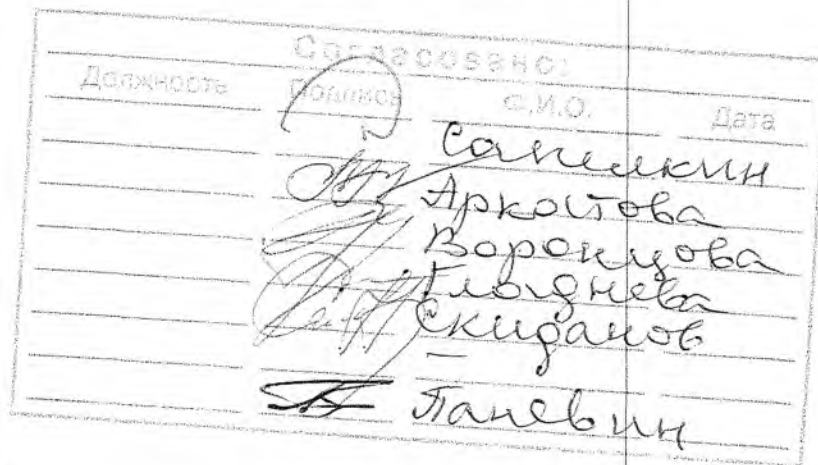 Согласовано:
Должность Подпись Ф.И.О. Дата
Сапелкин
Аркатова
Воронцова
Гладнева
Скиданов
–
Паневин